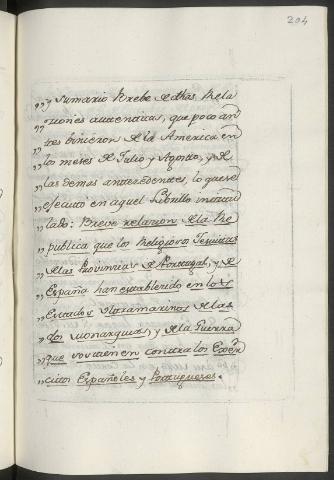 204
„ y sumario brebe de dhas Rela
„ ciones autenticas, que poco an
„ tes binieron de la America en
„ los meses de Julio y Agosto, y de
„ las demas antecedentes, lo que se
„ ejecuto en aquel Librillo intitu
„ lado: Breve relacion de la Re
„ publica que los Religiosos Jesuitas
„ de las Provincias de Portugal, y de
„ España han establecido en los
„ Estados Vltramarinos de las
„ dos Monarquias, y de la Guerra
„ que sostienen contra los Exer
„ citos Españoles y Portugueses.